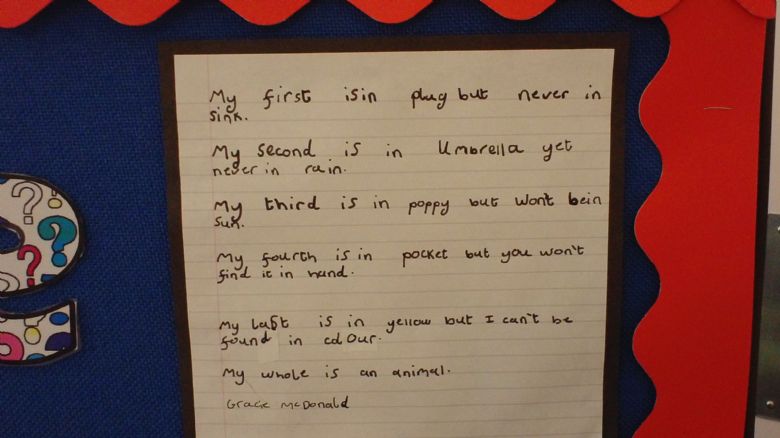 My first isin plug but never in
sink.
My second is in Umbrella yet
never in rain.
My third is in poppy but won't bein
sun.
My fourth is in pocket but you won't
find it in hand.
My last is in yellow but I can't be
found in colour.
My whole is an animal.
Gracie McDonald